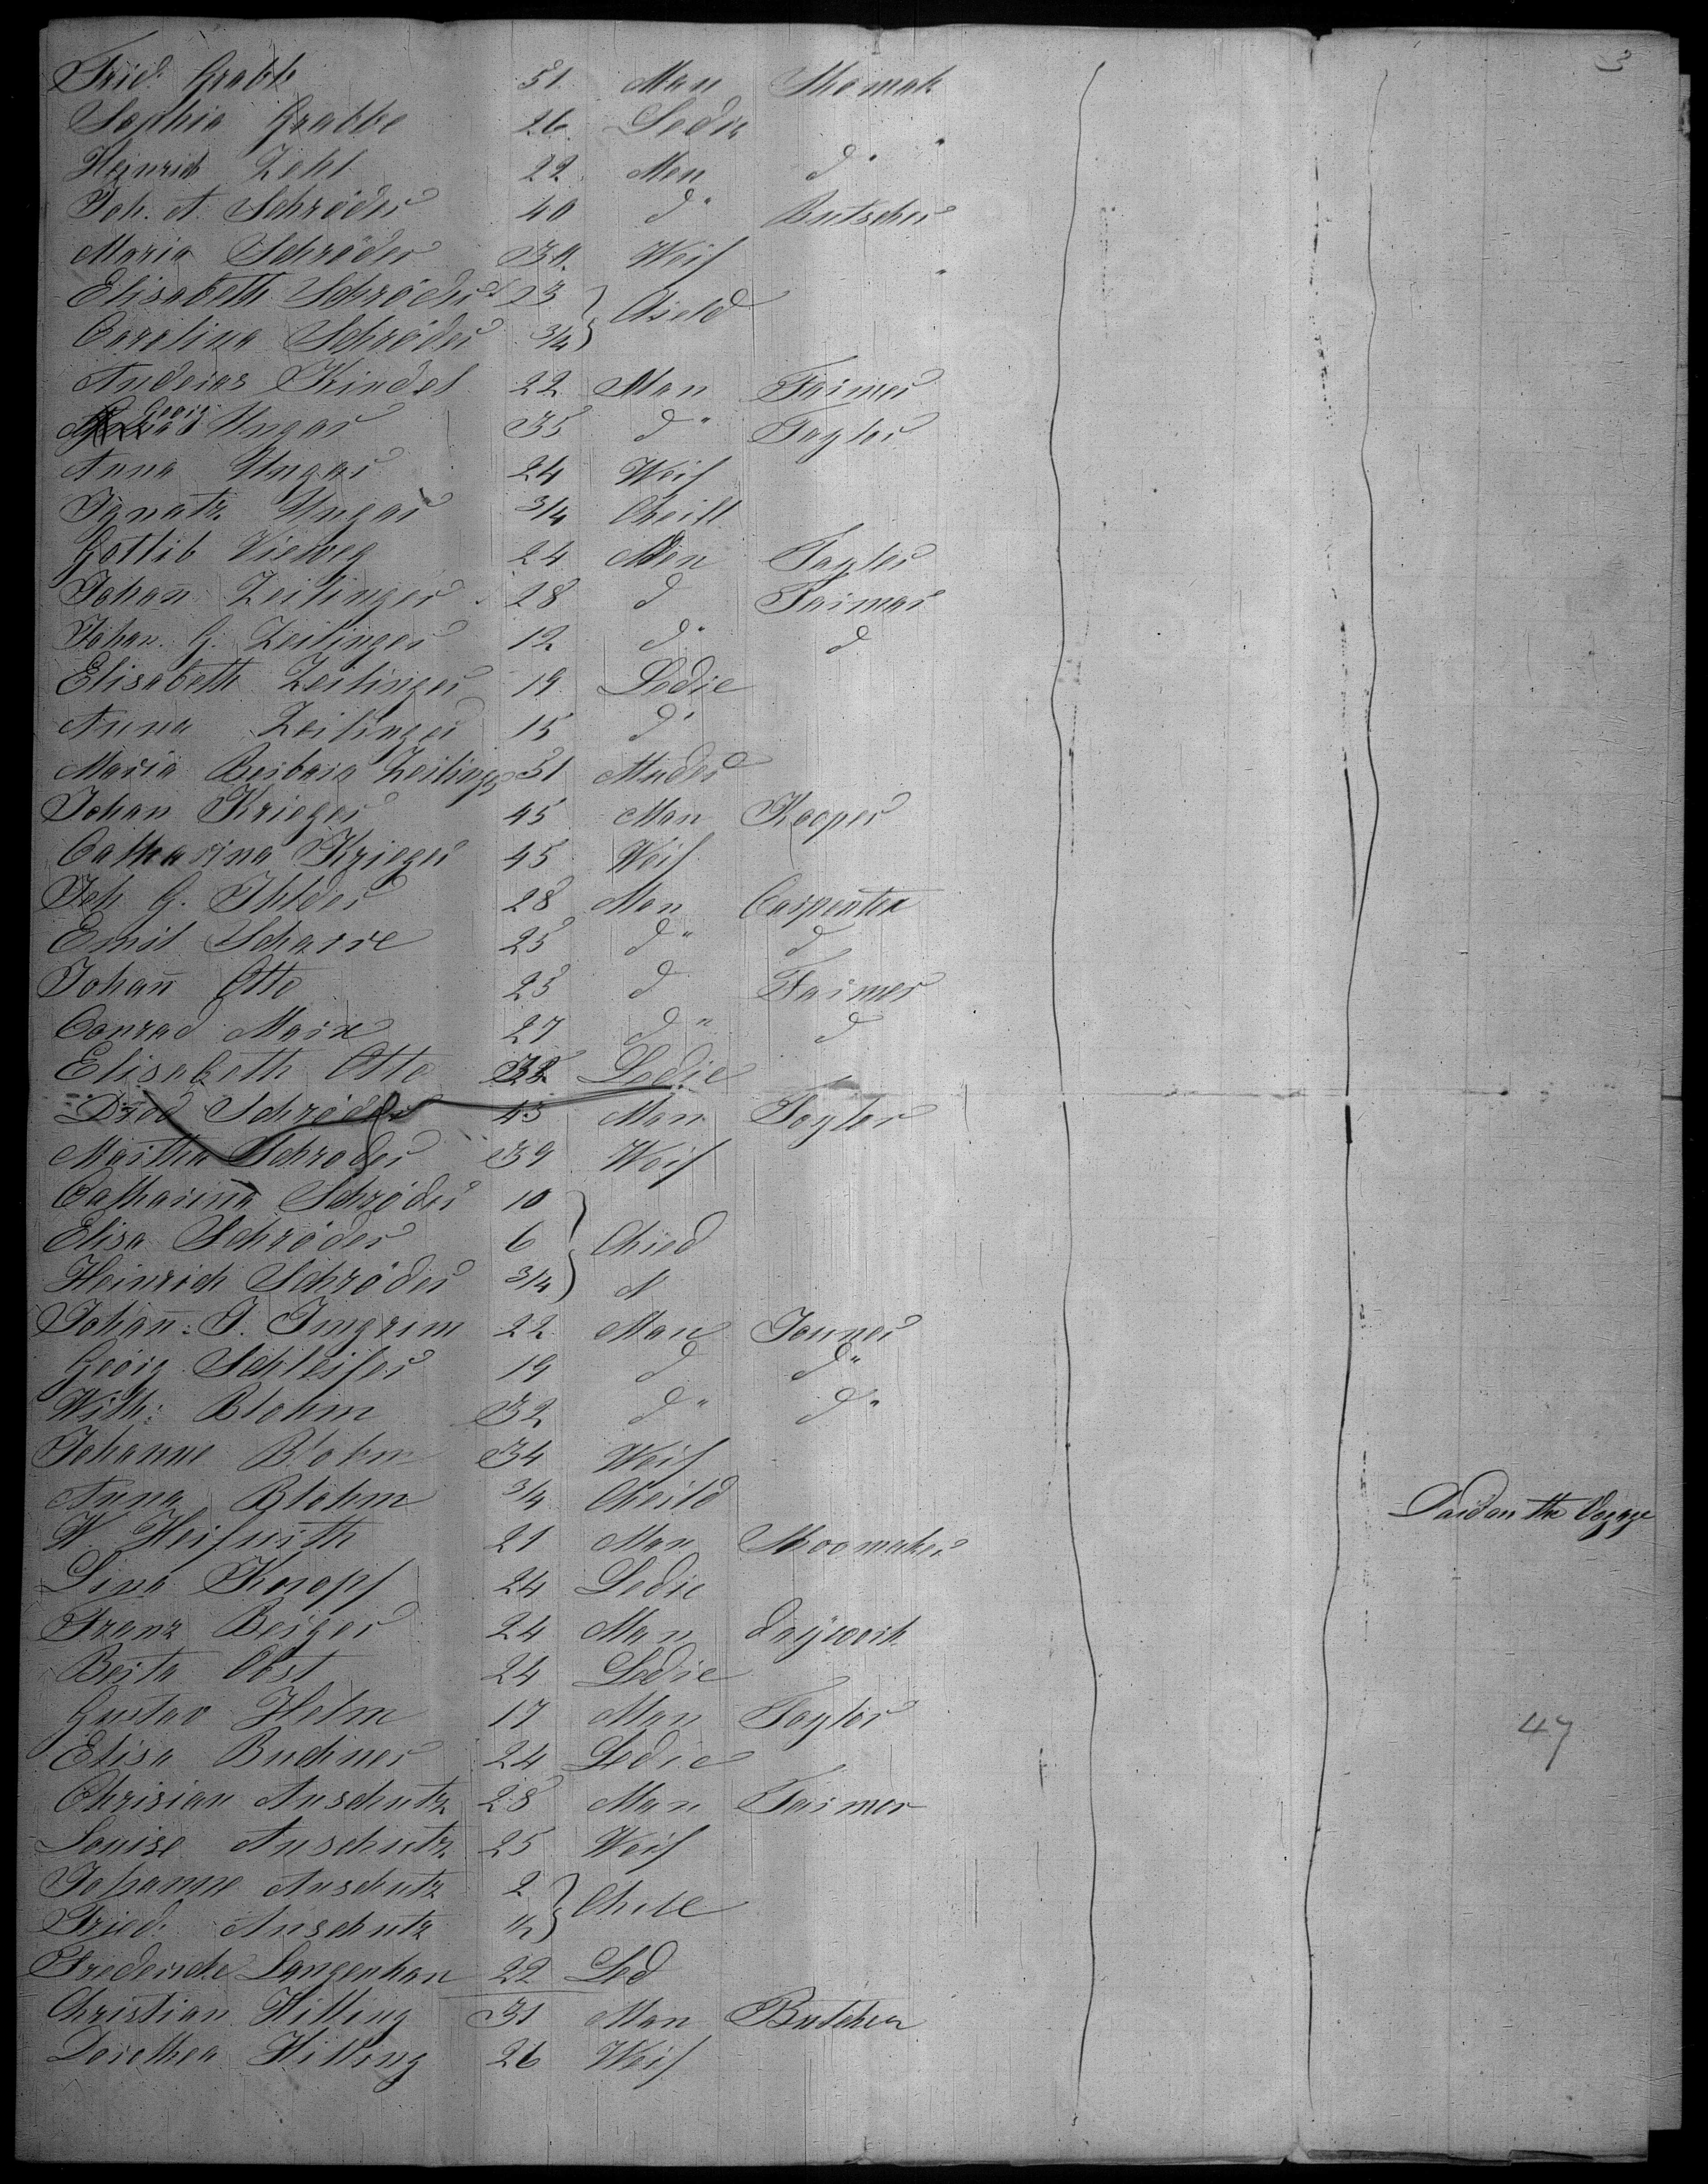 3
Fried. Grabbe 51 Man Shomak
Sophia Grabbe 26 Ledie "
Heinrich Zehl 22 Men d"
Joh. A. Schröder 40 d" Butscher
Maria Schröder 30 Weif "
Elisabeth Schröder 23 } Chield
Carolina Schröder 3/4 }
Andreas Kindel 22 Man Farmer
Georg Ungar 35 d" Taylor
Anna Ungar 24 Weif
Ignatz Ungar 3/4 Cheill
Gottlib Vieweg 24 Men Tayler
Johan Zeilinger 28 d Farmar
Johan. G. Zeilinger 12 d" d
Elisabeth Zeilinger 19 Ledie
Anna Zeilinger 15 d"
Maria Berbara Zeilinger 51 Muder
Johan Krieger 45 Man Kooper
Catharina Krieger 45 Weif
Joh G. Ihlder 28 Man Carpenter
Emil Scharre 25 d" d
Johan̄ Otto 25 d Farmer
Conrad Marx 27 d" d
Elisabeth Otto Ledie
Schröder 45 Man Tayler
Martha Schroder 39 Weif
Catharina Schröder 10 }
Elisa Schröder 6 } Chied
Heinrich Schröder 3/4 }
Johan̄: J. Imgrim 22 Man Jouner
Georg Schleifer 19 d d"
Wilh: Blohm 32 d" d"
Johanne Blohm 34 Weif
Anna Blohm 3/4 Cheild Daid on the Vogage
W. 21 Man Shoomaker
Lina Knopf 24 Ledie
Franz Berger 24 Man daywork
Berta Obst 24 Ledie
Gustav Helm 17 Man Taylor 47
Elisa Buchner 24 Ledie
Chrisian Anschutz 28 Man Farmer
Louise Anschutz 25 Weif
Johanne Anschutz 2 } Chile
Fried. Anschutz }
Fredericke Langenhan 22 Led
Christian Hilling 31 Man Butcher
Dorothea Hilling 26 Weif